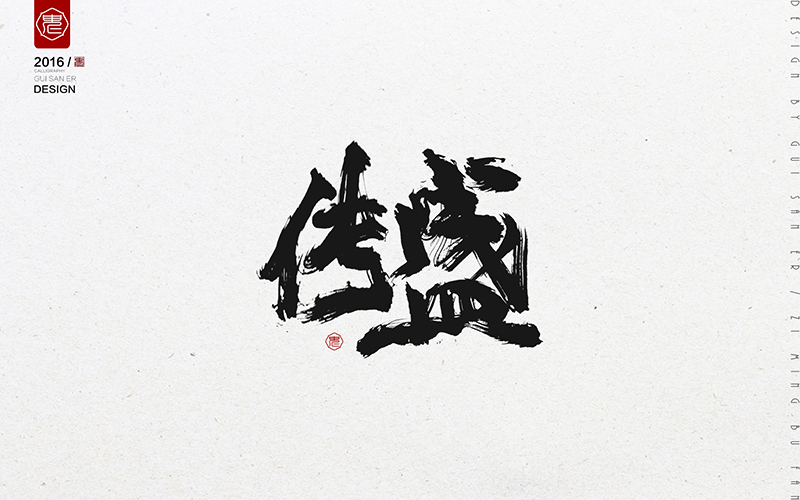 2016 /
CALLIGRAPHY
GUI SAN ER
DESIGN
传盛
DESIGN BY GUI SAN ER / ZI MING.BU FAN